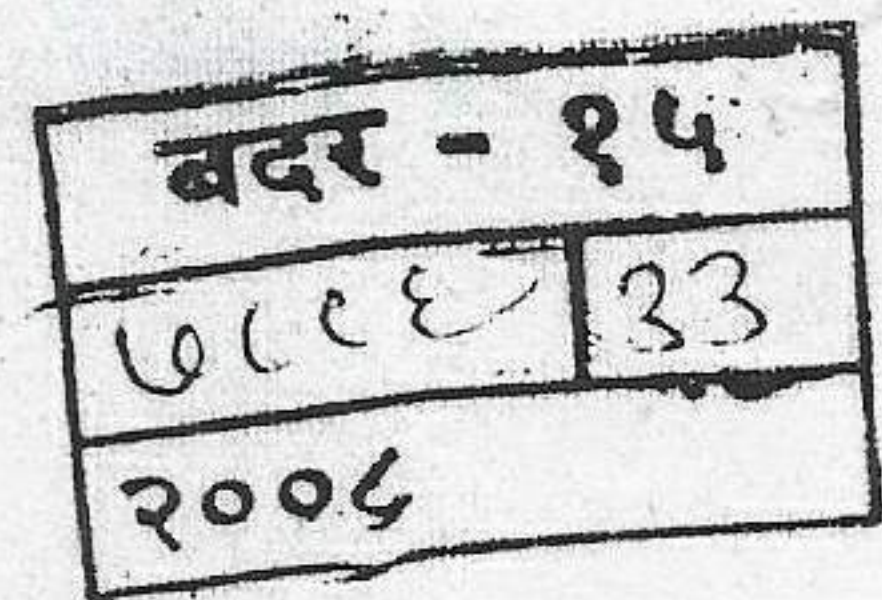 बदर - १५
७८८६ 33
२००८